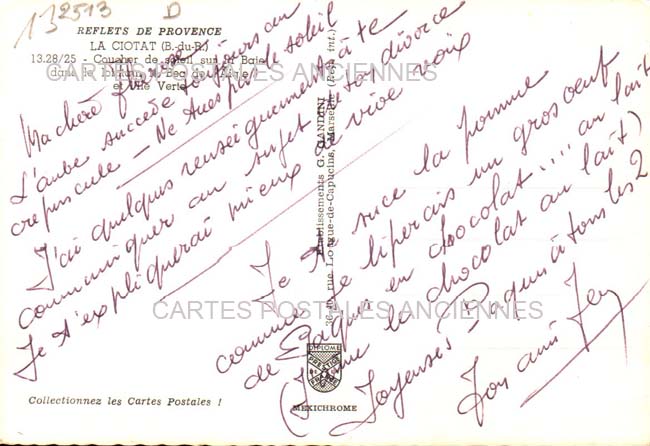 132513 D
REFLETS DE PROVENCE
LA CIOTAT (B.-du-R.)
13.28/25 - Coucher de soleil sur la Baie
dans le lointain le Bec de l'Aigle
et l'Ile Verte
CARTES POSTALES ANCIENNES
Ma chère
L'aube succède toujours au
crépuscule — Ne tues pas le soleil
J'ai quelques renseignements à te
communiquer au sujet de ton divorce
Je t'expliquerai mieux de vive voix
Je te suce la pomme
comme je liperais un gros oeuf
de Pâques en chocolat .... au lait
(J'aime le chocolat au lait)
Joyeuses Pâques à tous les 2
Ton ami
CARTES POSTALES ANCIENNES
Etablissements G. GANDINI
rue Longue-de-Capucins, Marseille (Rep. int.)
DIPLOME
PRESTIGE
MEXICHROME
Collectionnez les Cartes Postales !